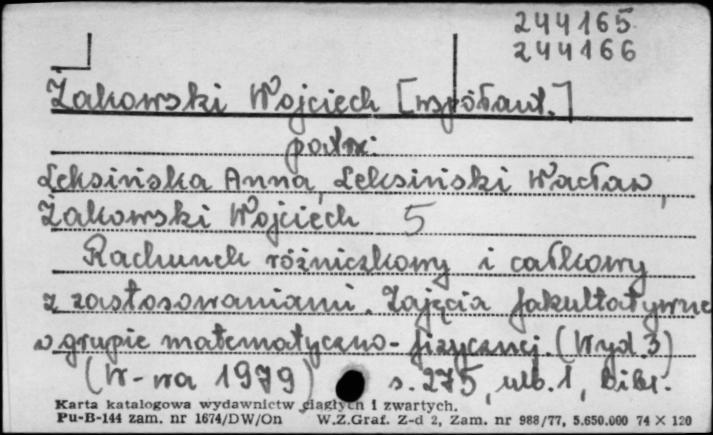 244165
244166
Żakowski Wojciech [współaut.]
patrz:
Leksińska Anna, Leksiński Wacław,
Żakowski Wojciech 5
Rachunek różniczkowy i całkowy
z zastosowaniami. Zajęcia fakultatywne
w grupie matematyczno-fizycznej. (Wyd. 3)
(W-wa 1979) s. 275, nlb. 1, bibl.
Karta katalogowa wydawnictw ciągłych i zwartych.
Pu-B-144 zam. nr 1674/DW/On W.Z.Graf. Z-d 2, Zam. nr 988/77, 5.650.000 74 × 120